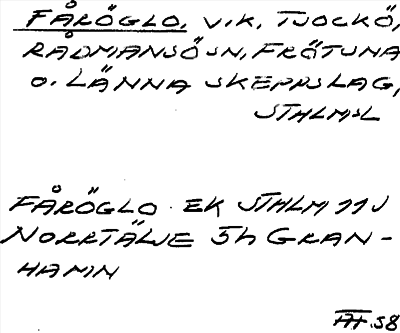 FÅRÖGLO, V.K, TJOCKÖ,
RÅDMANSÖ SN, FRÖTUNA
O. LÄNNA SKEPPSLAG,
STHLMSL
FÅRÖGLO EK STHLM 11J
NORRTÄLJE 5h GRAN-
HAMN